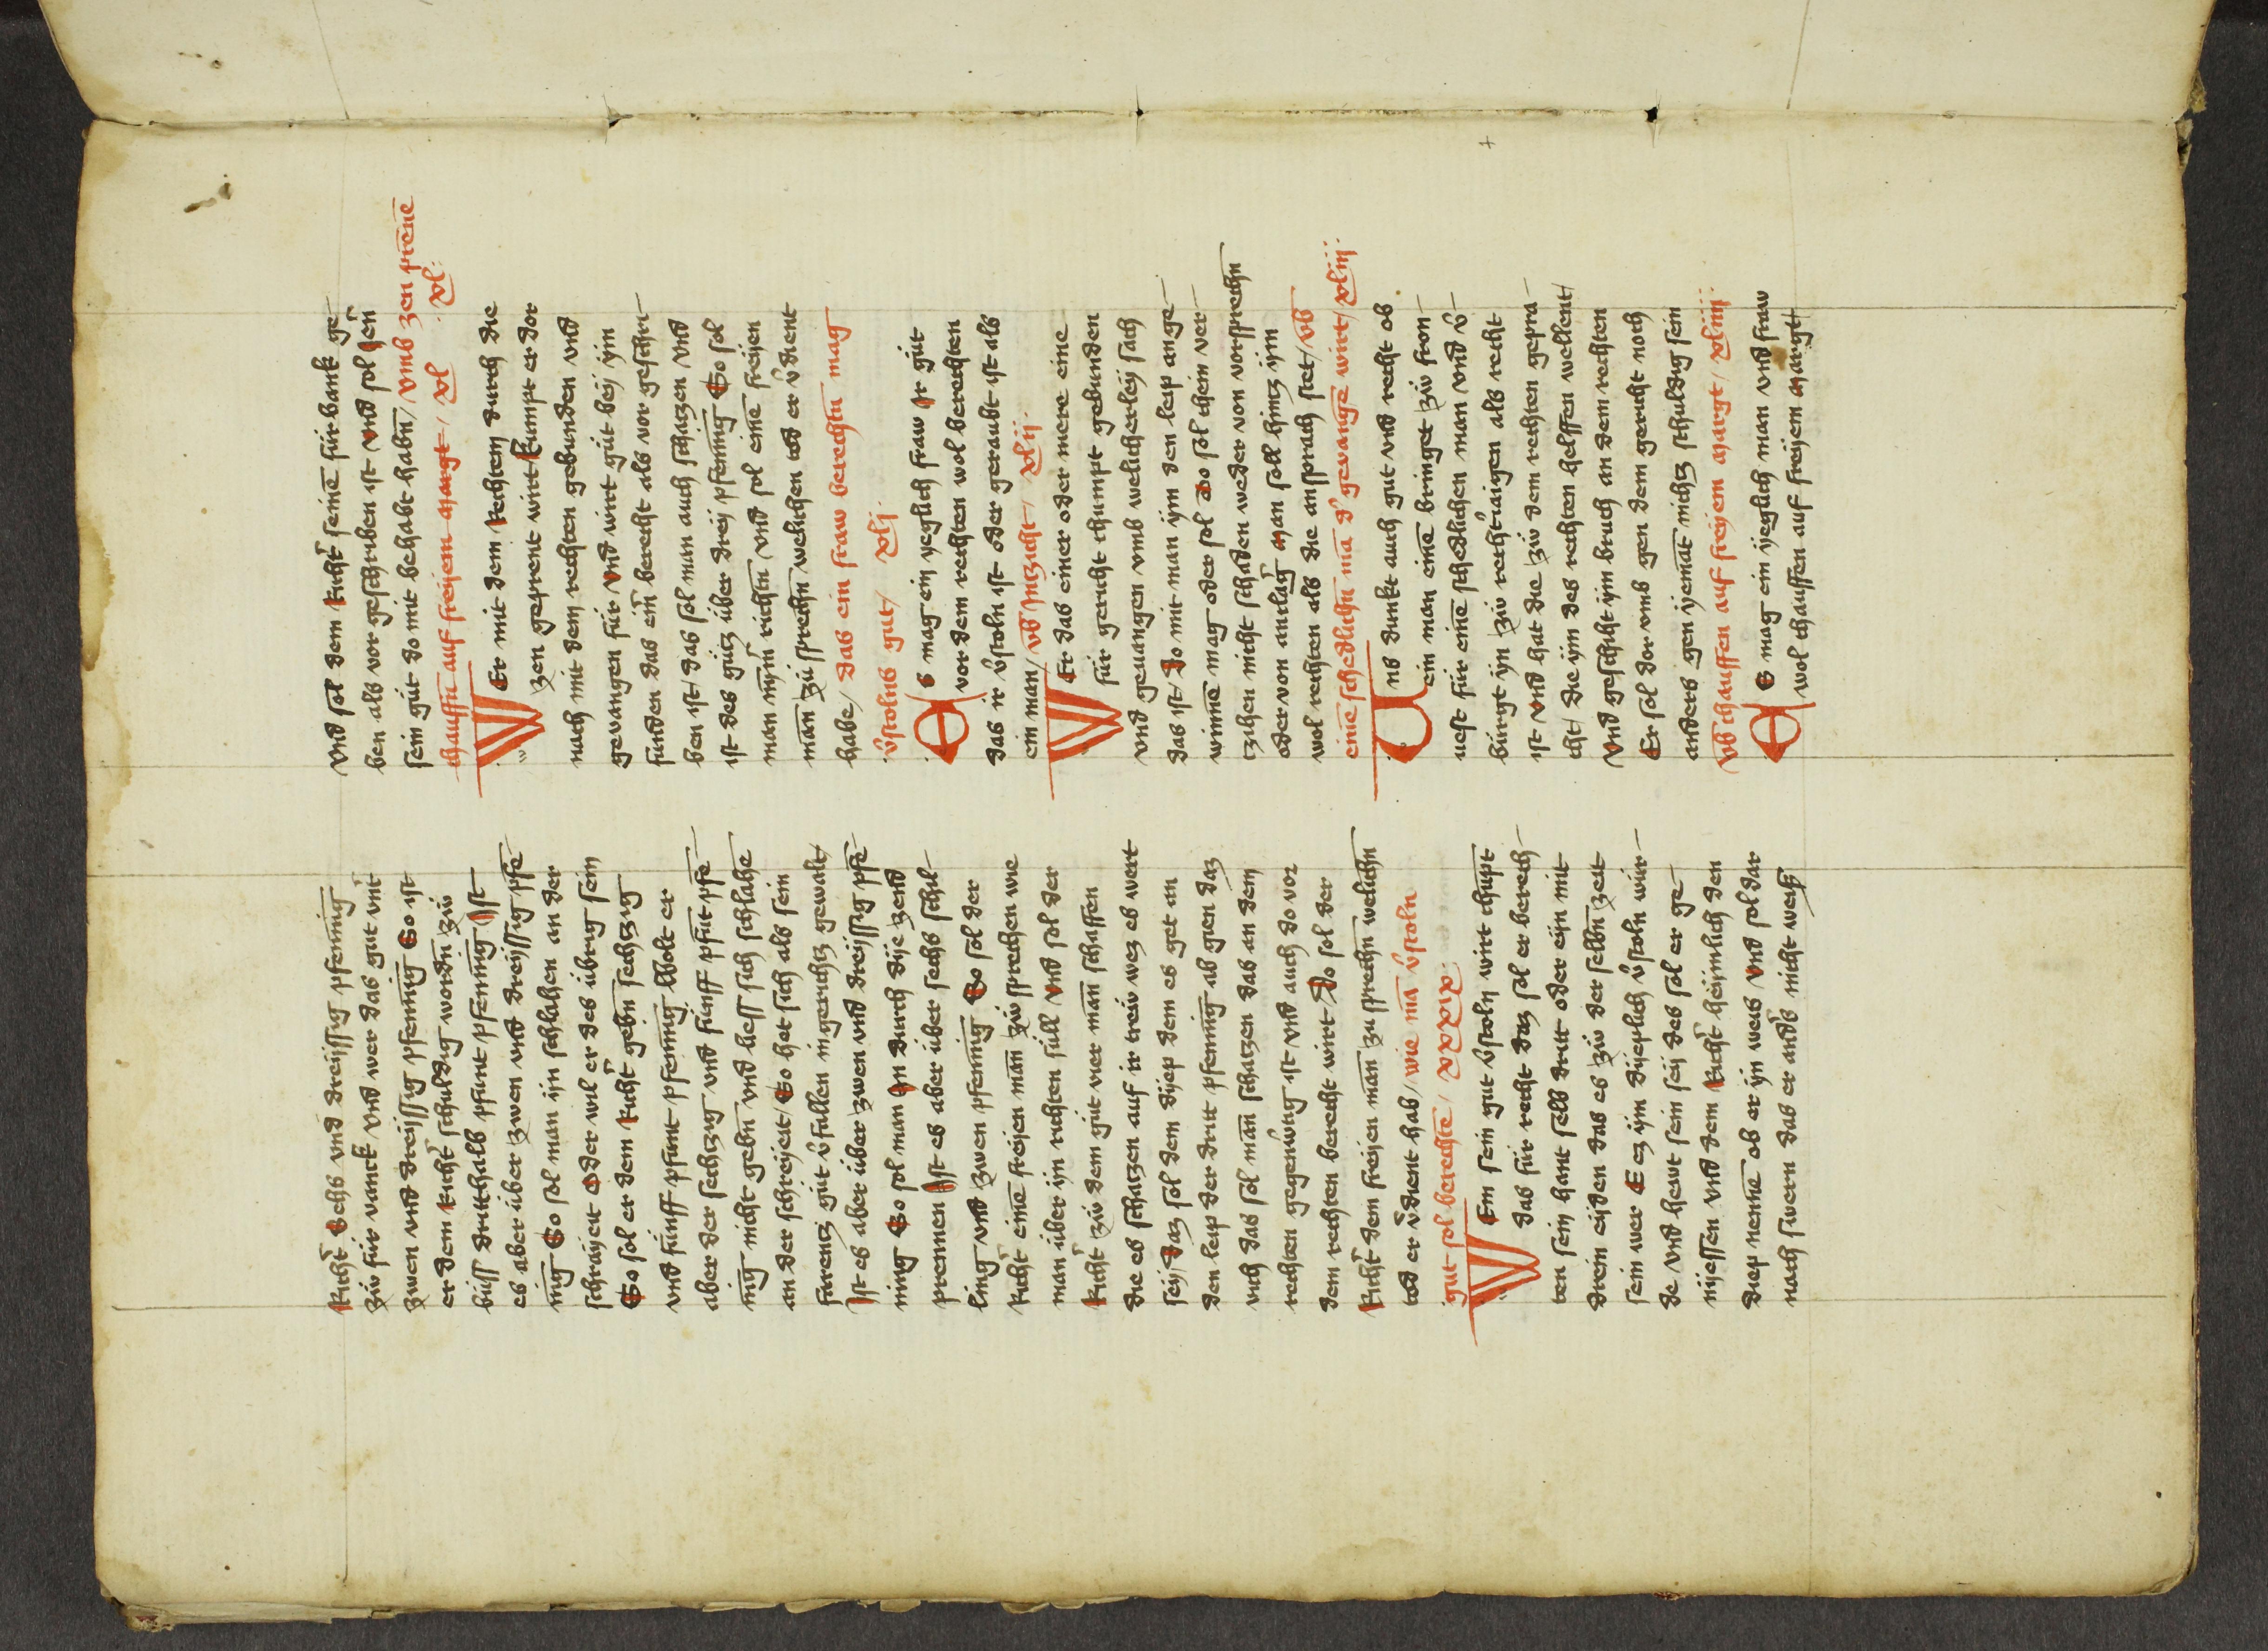 Richt͛ Sechs vnd dreissig pfening̅
ziv für vanck vnd wer das gut vnt͛
zwen vnd dreissig pfennig So ist
er dem Richt͛ schuldig wordn̅ ziv
büss dritthalb pfunt pfennig Ist
es aber über zwen vnd dreissig pfe-
nig So sol man ijn schlahen an der
schraÿeit oder wil er des übrig sein
So sol er dem Richt͛ gebn̅ sechtzig
vnd fünff pfunt pfennig Wolt er
aber der sechtzig vnd fünff pfūt pfe-
nig nicht gebn̅ vnd liess sich schlahe̅
an der schreÿeit / So hat sich als sein
farentz gut v͛fallen in gerichtz gewalt /
Ist es aber über zwen vnd dreissig pfe-
ning So sol man In durch dÿe zend
prennen Ist es aber über sechs schil-
ling vnd zwen pfennig So sol der
Richt͛ eine̅ freÿen man̅ ziv sprechen wie
man über ijn richten süll vnd sol der
Richt͛ ziv dem gut vier man̅ schaffen
die es schatzen auf ir treiv wez es wert
seÿ / Daz sol dem dÿep dem es get an
den leip der dritt pfennig ab gien daz
vich das sol man̅ schatzen das an dem
rechten gegen̅wu̅g ist vnd auch do vor
dem rechten berecht wirt / Do sol der
Richt͛ dem freÿen man̅ zu sprechn̅ welichn̅
tod er v͛dient hab / wie ma̅ v͛stoln
gut sol berechte̅ / xxxix
Wem sein gut v͛stoln wirt chu̅pt
das für recht daz sol er berech-
ten sein hant selb dritt oder eyn mit
drein eÿden das es ziv der selbn̅ zeit
sein wer E ez ÿm dÿeplich v͛stoln wür-
de vnd hewt sein seÿ des sol er ge-
nÿessen vnd dem Richt͛ heÿmlich den
diep nenne̅ ob er ÿn weis vnd sol dar
nach swern das er and͛s nicht weiß
vnd sol dem Richt͛ seine̅ fürbank ge-
ben als vor geschriben ist vnd sol sein
sein gut do mit behabt habn̅ / vmb zen prene̅
chauffn̅ auf freÿem margt / xl · xl :
Wer mit dem Rechtem durch die
zen geprent wirt kumpt er dor
nach mit dem rechten gebunden vnd
gevangen für vnd wirt gut beÿ ÿm
funden das ein͛ berecht als vor geschri-
ben ist / das sol man auch schatzen vnd
ist des gütz über dreÿ pfennig So sol
man nÿm͛ richtn̅ vnd sol eine̅ freÿen
man̅ zü sprechn̅ welichen tod er v͛dient
habe / das ein fraw berechtn̅ mag
v͛stolns gut / xlj
Es mag ein yeglich fraw ir gut
vor dem rechten wol berechten
das ir v͛stoln ist oder geraubt ist als
ein man / vō Intzicht / xlij
Wer das einer oder mere eine
für gericht chumpt gebunden
vnd gevangen vmb welicherleÿ sach
das ist / Do mit man ÿm den leip ange-
winne̅ mag oder sol do sol chein ver-
tzihen nicht schaden weder von vorsprechn̅
oder von anclag͛ man soll hintz ÿm
wol rechten als die ansprach stet / vō
eine̅ schedlichn̅ ma̅ d͛ gevange̅ wirt / xliij
Uns dunkt auch gut vnd recht ob
ein man eine̅ bringet ziv fron-
uest für eine̅ schedlichen man vnd v͛-
bürgt ÿn ziv rechtv͛aigen als recht
ist vnd hat die ziv dem rechten gepra-
cht / die ÿm des rechten helffen wellent /
vnd geschiht ÿm bruch an dem rechten
Er sol dor vmb gen dem gericht noch
anders gen ÿema̅t nichtz schuldig sein
vō chauffen auf freÿem margt / xliiij
Es mag ein ÿeglich man vnd fraw
wol chauffen auf freÿem margt /